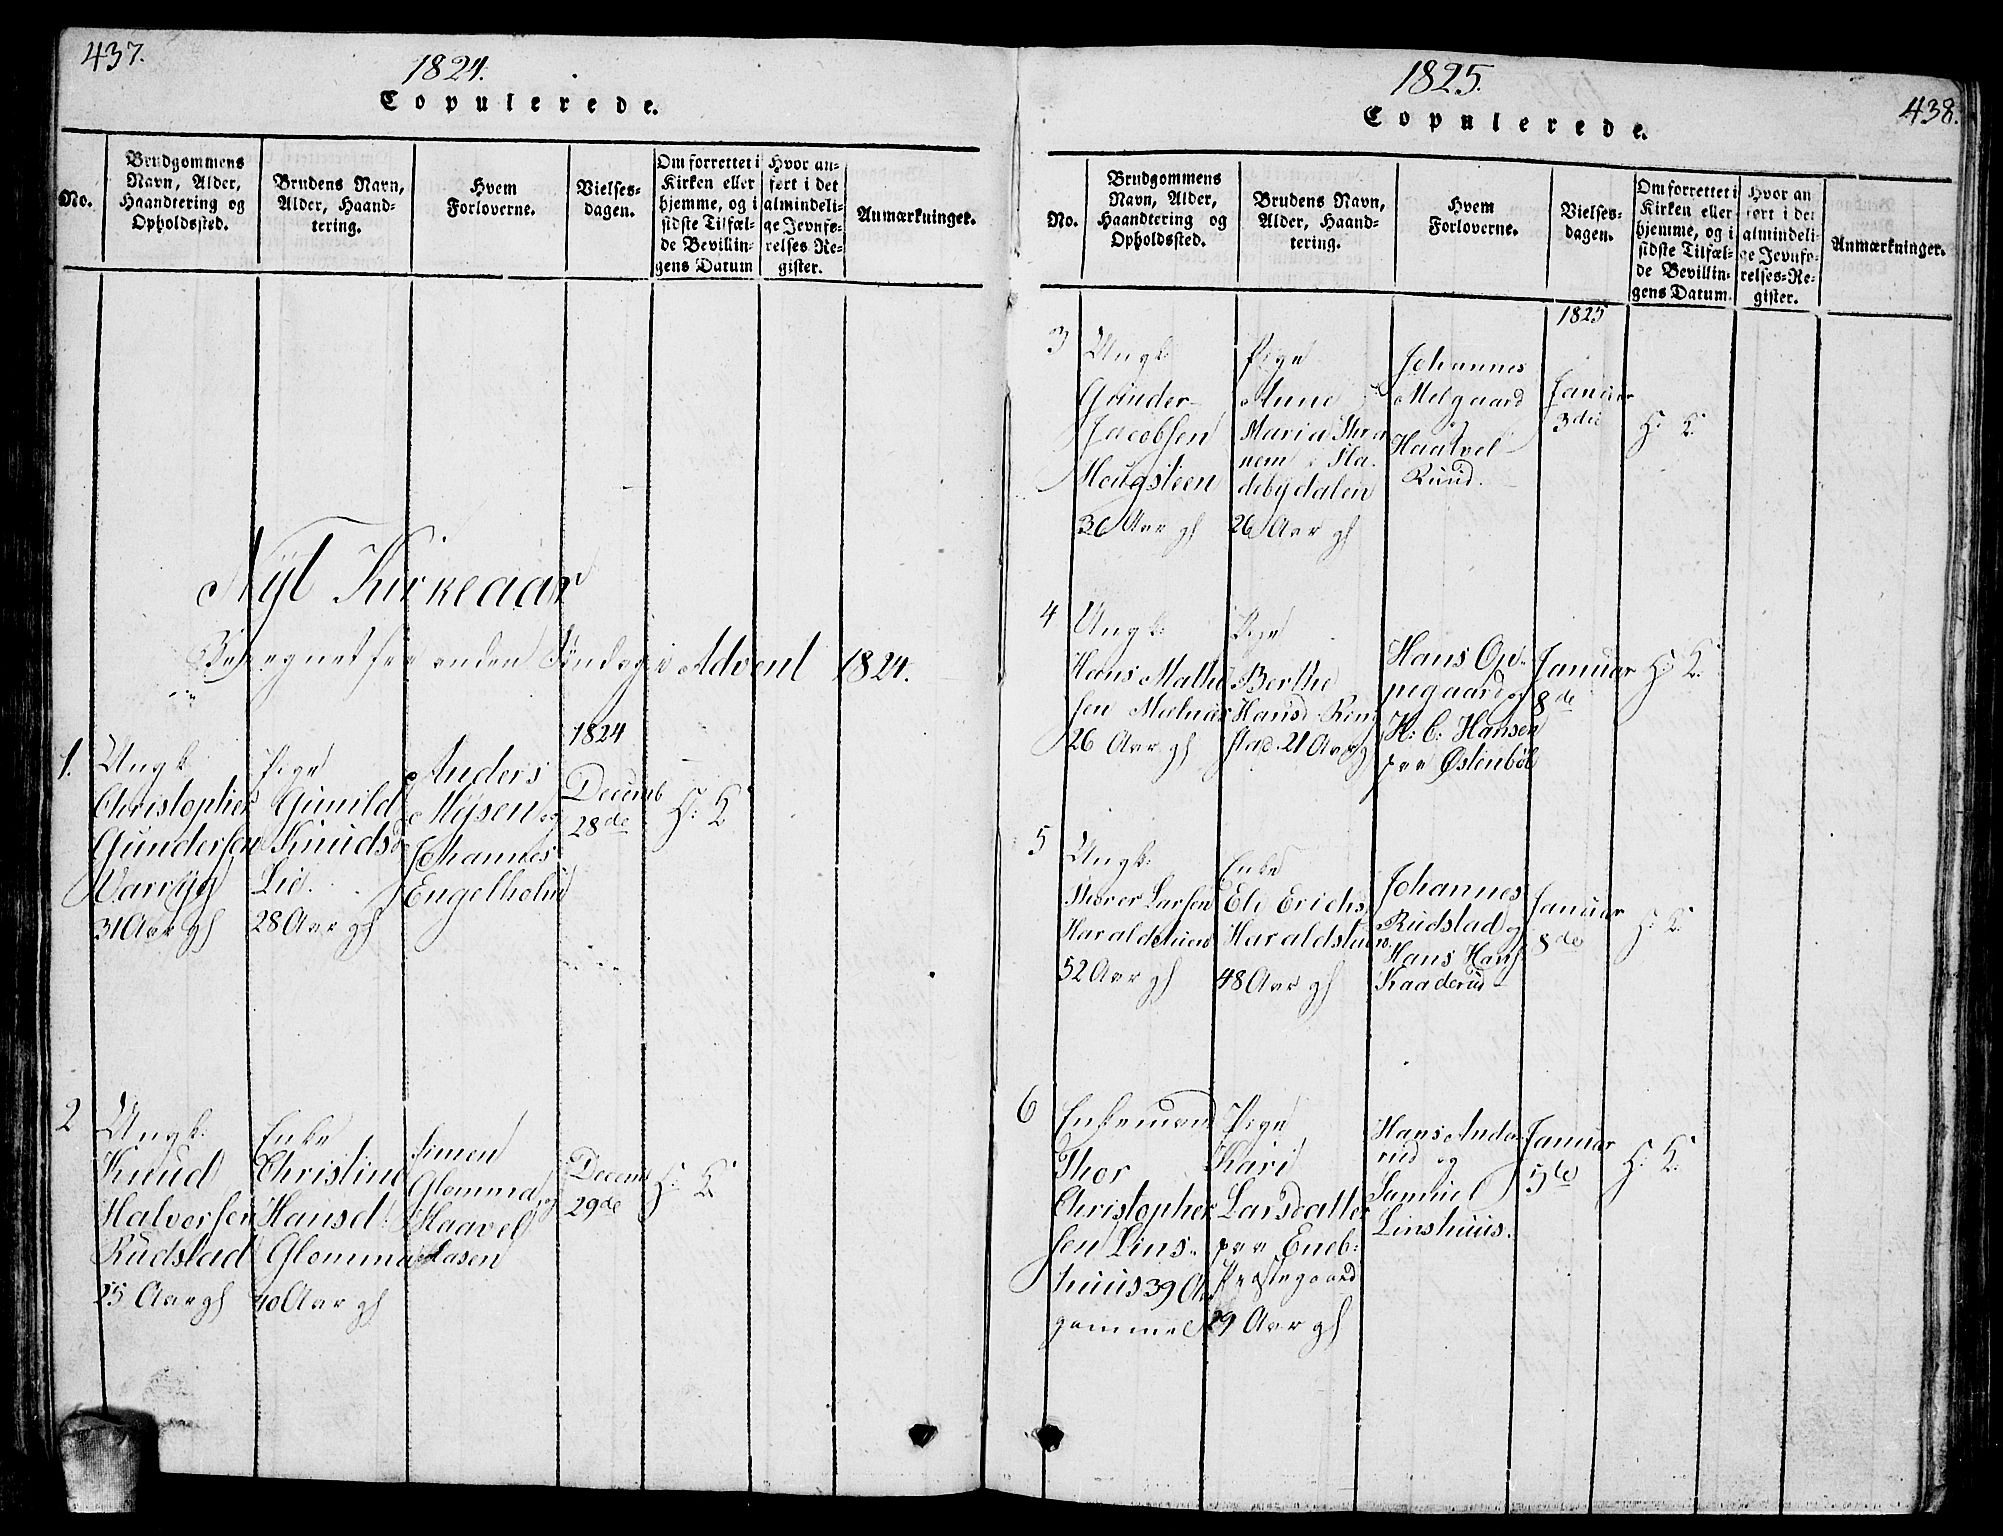 437.
1824.
Copulerede.
No.
Brudgommens
Navn, Alder,
Haandtering og
Opholdssted.
Brudens Navn,
Alder, Haand-
tering.
Hvem
Forloverne.
Vielses-
dagen.
Om forrettet i
Kirken eller
hjemme, og i
sidste Tilfæl-
de Bevillin-
gens Datum
Hvor an-
ført i det
almindeli-
ge Jevnfø-
relses Re-
gister.
Anmærkninger.
Nÿt Kirkeaar
Beregnet fra anden Søndag i Advent 1824.
1.
Ungk.
Christopher
Gundersen
31 Aar gl
Pige
Gunild
Knudsd
Lie.
28 Aar gl
Anders
Mÿsen og
Johannes
Engelholm
1824
Decemb
28de
H: K.
2
Ungk.
Knud
Halvorsen
Rudstad
25 Aar gl
Enke
Christine
Hansd:
Glomma
40 Aar gl
Simen
Glomma og
Haavel
Aasen
Decemb
29de
H: K.
1825.
438.
Copulerede.
No.
Brudgommens
Navn, Alder,
Haandtering og
Opholdssted.
Brudens Navn,
Alder, Haand-
tering.
Hvem
Forloverne.
Vielses-
dagen.
Om forrettet i
Kirken eller
hjemme, og i
sidste Tilfæl-
de Bevillin-
gens Datum.
Hvor an
ført i det
almindeli-
ge Jevnfø-
relses-Re-
gister.
Anmærkninger.
3
Ungk.
Gunder
Jacobsen
36 Aar gl
Pige
Anne
Maria
debydalen
26 Aar gl
Johannes
Melgaard
og
Haavel
Ruud.
1825
Januar
3die
H: K.
4
Ungk.
Hans Mathi
sen
26 Aar gl
Pige
Berthe
Hansd
stad. 21 Aar g
Hans Op-
pegaard og
H: C: Hansen
paa Østenbøl
Januar
8de
H: K.
5
Ungk.
Thorer Larsen
Haraldstuen
52 Aar gl
Enke
Eli Erichs
Haraldstuen
48 Aar gl
Johannes
Rudstad og
Hans Hans
Kaaderud
Januar
8de
H: K.
6
Enkemand
Thor
Christopher
sen Lins-
huus 39 Aar
gammel
Pige
Kari
Larsdatter
paa Eneb:
Præstegaard
29 Aar gl
Hans Ande
rud og
Samuel
Linshuus.
Januar
5te
H: K.